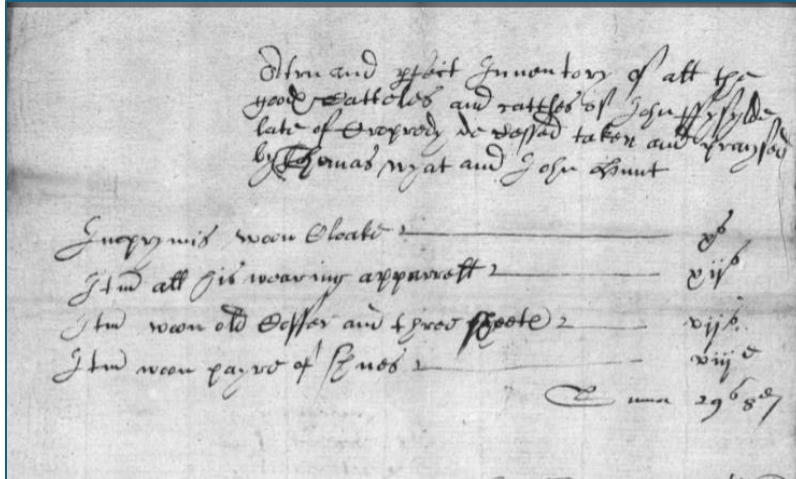 A tru and pfect Inventory of all the
goods Catteles and cattles of John ffyfylde
late of Cropredy decessed taken and praysed
by Thomas wyat and John Hunt
Inprymis woon Cloake x s
Itm all his wearing apparrell xii s
Itm woon old Coffer and three sheete vii s
Itm woon payre of shues viii d
Suma 29 s 8 d